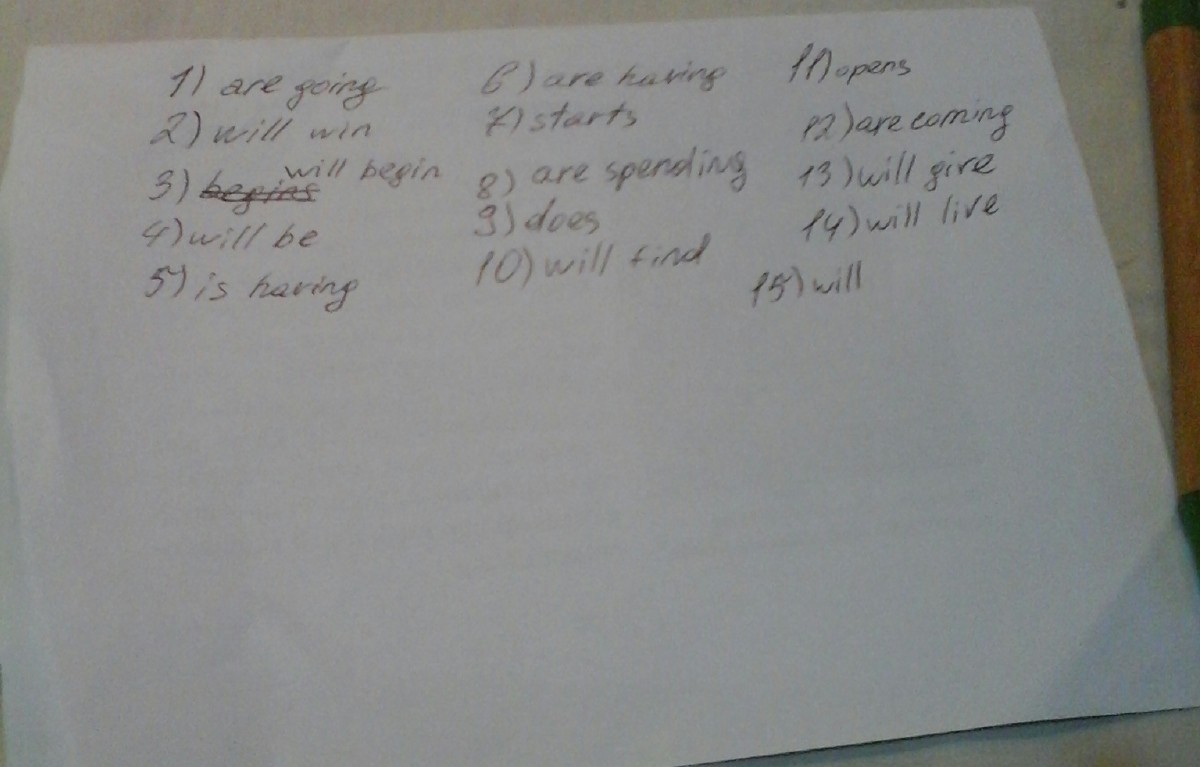 1) are going
2) will win
3) begins will begin
4) will be
5) is having
6) are having
7) starts
8) are spending
9) does
10) will find
11) opens
12) are coming
13) will give
14) will live
15) will